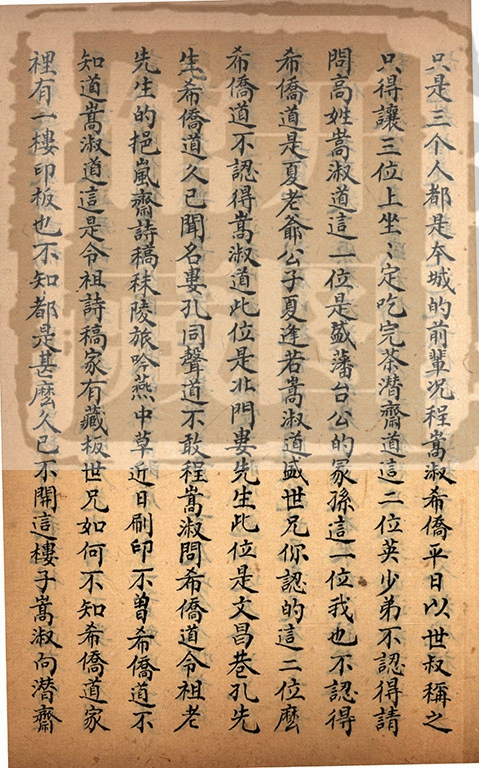 只是三个人都是本城的前輩况程嵩淑希僑平日以世叔稱之
只得讓三位上坐〻定吃完茶潛齋道這二位英少弟不認得請
問高姓嵩淑道這一位是盛藩台公的冢孫這一位我也不認得
希僑道是夏老爺公子夏逢若嵩淑道盛世兄你認的這二位麼
希僑道不認得嵩淑道此位是北門婁先生此位是文昌巷孔先
生希僑道久已聞名婁孔同聲道不敢程嵩淑問希僑道令祖老
先生的挹嵐齋詩稿秣陵旅吟燕中草近日刷印不曾希僑道不
知道嵩淑道這是令祖詩稿家有藏板世兄如何不知希僑道家
裡有一樓印板也不知都是甚麽久已不開這樓子嵩淑向潛齋